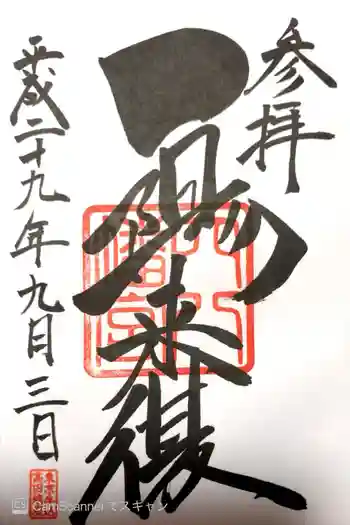 参拝
一陽来復
平成二十九年九月三日
CS CamScanner でスキャン